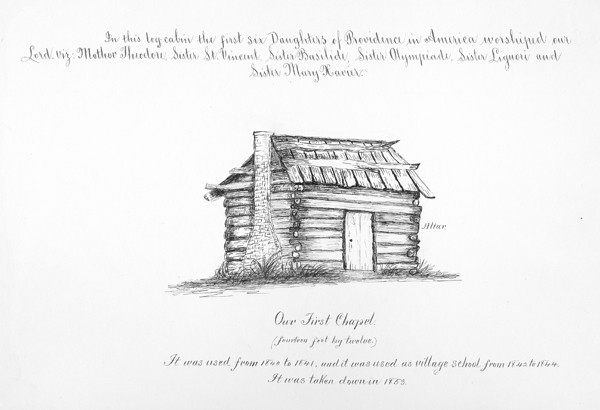 In this log-cabin the first six Daughters of Providence in America worshiped our
Lord. viz: Mother Theodore, Sister St. Vincent, Sister Basilide, Sister Olympiade, Sister Liguori and
Sister Mary Xavier.
Altar.
Our First Chapel.
(fourteen feet by twelve.)
It was used from 1840 to 1841, and it was used as village school from 1842 to 1844.
It was taken down in 1853.